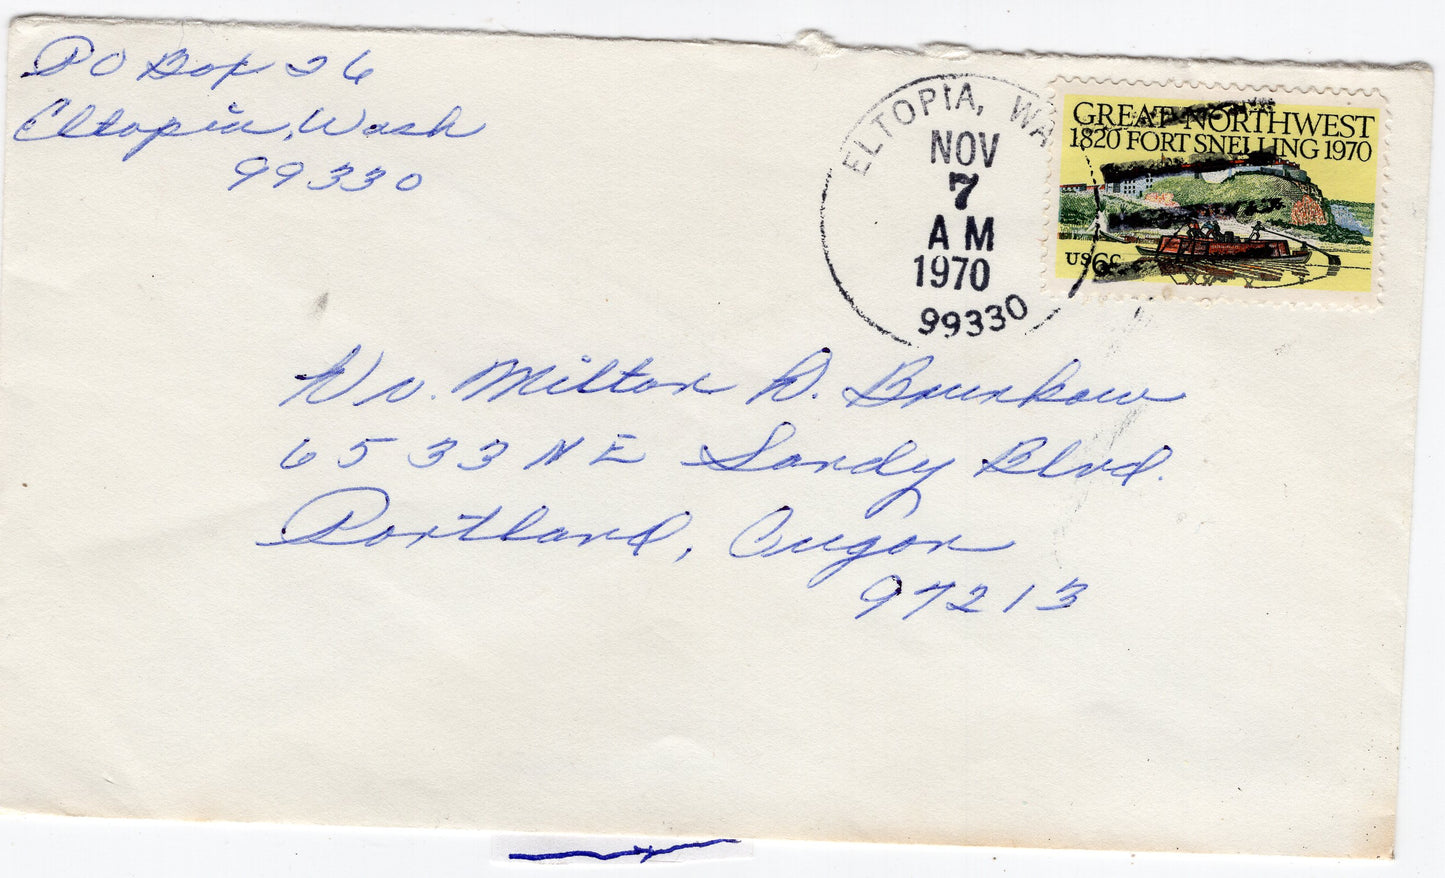 PO Box 26
Eltopia, Wash
99330
ELTOPIA, WA
NOV
7
AM
1970
99330
GREAT NORTHWEST
1820 FORT SNELLING 1970
US 6c
Milton D. Brunkow
6533 NE Sandy Blvd.
Portland, Oregon
97213